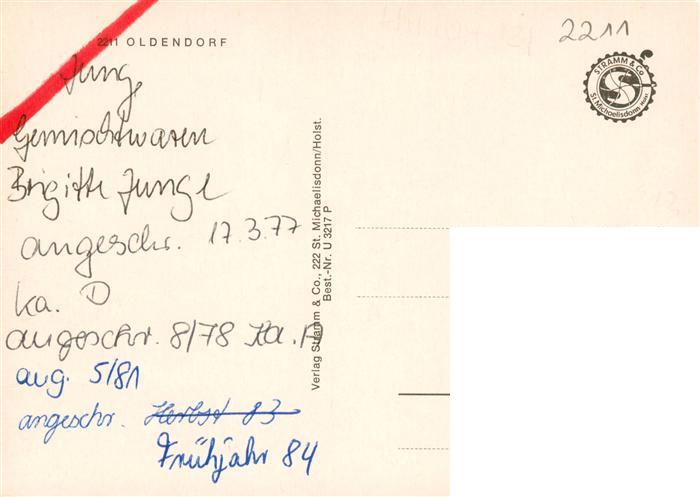 2211
2211 OLDENDORF
STRAMM & Co
St. Michaelisdonn Holst.
Junge
Gemischtwaren
Brigitte Junge
angeschr. 17.3.77
ka. D
angeschr. 8/78 Ka. A
aug. 5/81
angeschr. Herbst 83
Frühjahr 84
Verlag Stramm & Co., 222 St. Michaelisdonn/Holst.
Best.-Nr. U 3217 P